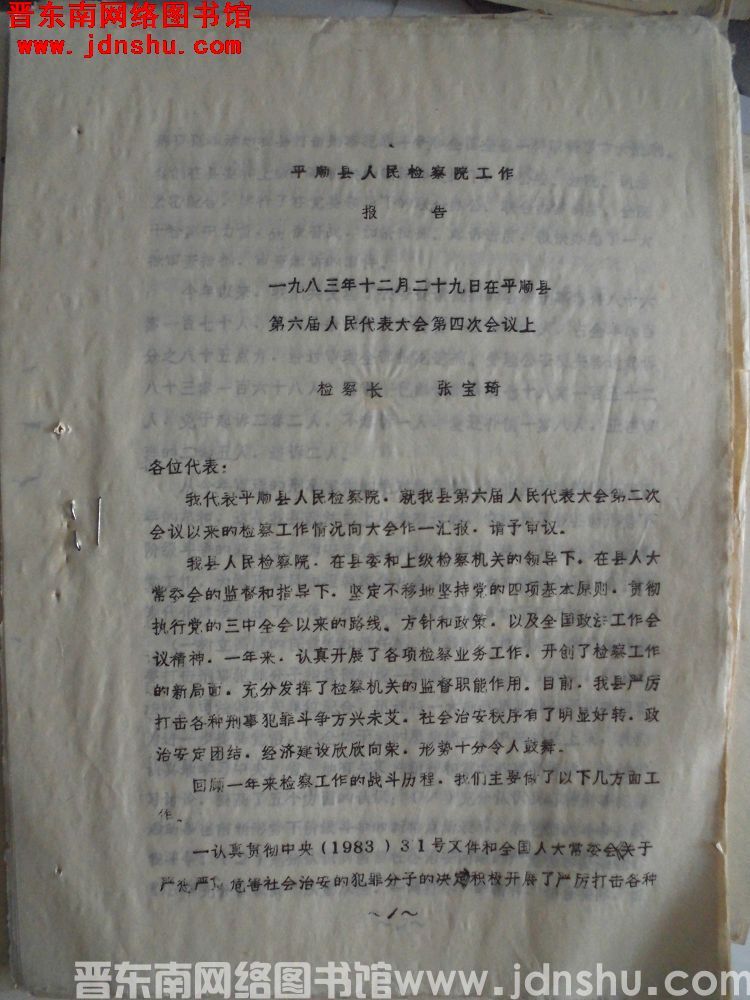 晋东南网络图书馆
www.jdnshu.com
平顺县人民检察院工作
报 告
一九八三年十二月二十九日在平顺县
第六届人民代表大会第四次会议上
检察长 张宝琦
各位代表：
我代表平顺县人民检察院，就我县第六届人民代表大会第二次
会议以来的检察工作情况向大会作一汇报，请予审议。
我县人民检察院，在县委和上级检察机关的领导下，在县人大
常委会的监督和指导下，坚定不移地坚持党的四项基本原则，贯彻
执行党的三中全会以来的路线、方针和政策，以及全国政法工作会
议精神，一年来，认真开展了各项检察业务工作，开创了检察工作
的新局面，充分发挥了检察机关的监督职能作用。目前，我县严厉
打击各种刑事犯罪斗争方兴未艾，社会治安秩序有了明显好转，政
治安定团结，经济建设欣欣向荣，形势十分令人鼓舞。
回顾一年来检察工作的战斗历程，我们主要做了以下几方面工
作。
一认真贯彻中央（1983）31号文件和全国人大常委会关于
严惩严 危害社会治安的犯罪分子的决定积极开展了严厉打击各种
～1～
晋东南网络图书馆www.jdnshu.com